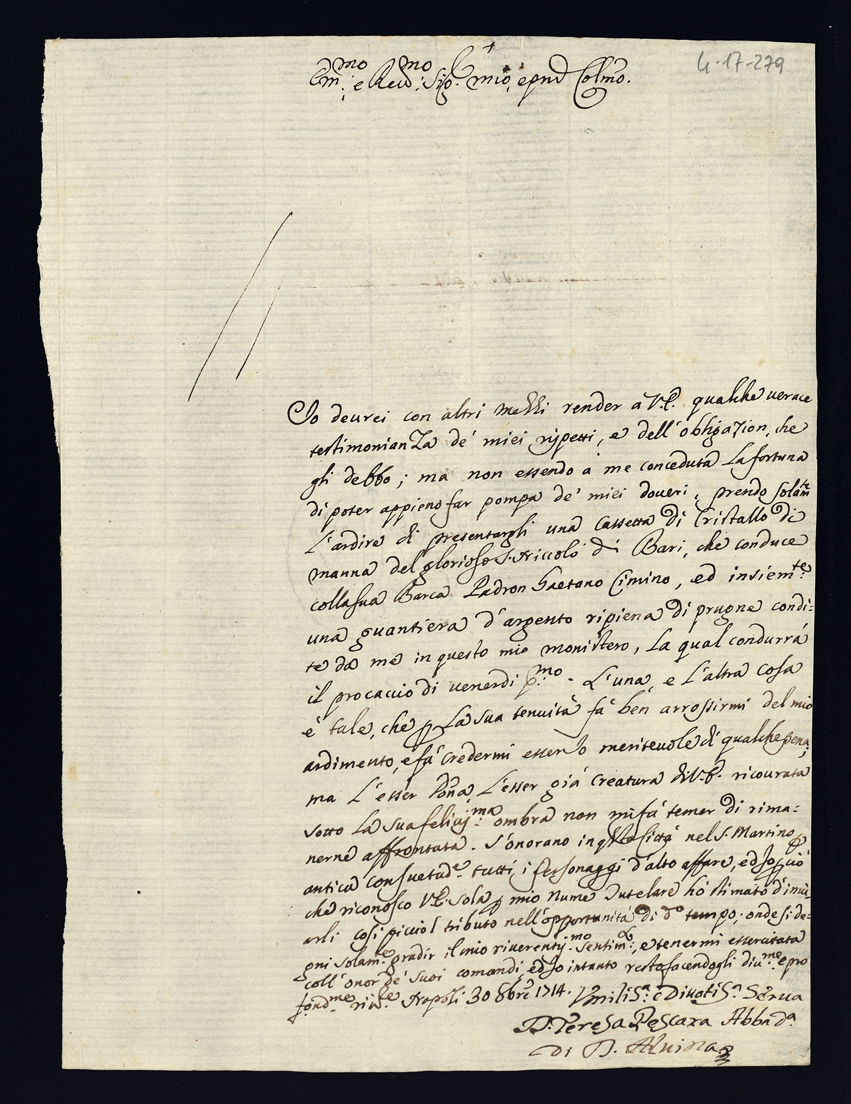 4-17-279
Em.mo e Rev.mo Sig.r mio, e pnē Colmo.
Io deurei con altri mezzi render a V.E. qualche verace
testimonianza de' miei rispetti, e dell'obligazion, che
gli debbo; ma non essendo à me conceduta la fortuna
di poter appieno far pompa de' miei doveri, prendo solam.te
l'ardire di presentargli una cassetta di Cristallo di
manna del glorioso S. Niccolò di Bari, che conduce
colla sua Barca Padron Gaetano Cimino, ed insiem.te
una guantiera d'argento ripiena di prugne condi:
te da me in questo mio monistero, la qual condurrà
il procaccio di venerdi p.mo. L'una, e l'altra cosa
è tale, che p la sua tenuità fà ben arrossirmi del mio
ardimento, e fà credermi esser lo meritevole di qualche pena;
ma l'esser l'esser già creatura di V.E. ricourata
sotto la sua feliciss.ma ombra non mi fà temer di rima:
nerne affrontata. S'onorano in q.sta Città nel S. Martino p
antica consuetud.e tutti i Personaggi d'alto affare, ed Io, p ciò
che riconosco V.E. sola p mio nume Tutelare hò stimato d'invi:
arli così picciol tributo nell'opportunità di d.o tempo, onde si de:
gni solam.e gradir il mio riverentiss.mo sentim.o, e tenermi essercitata
coll'onor de' suoi comandi, ed Io intanto resto facendogli diu.me e pro
fond.me riv.ze Napoli 30 8bre 1714. Vmilis.a e Diuotis.a Serua
D. Teresa Pescara Abbad.a
di D. Aluina